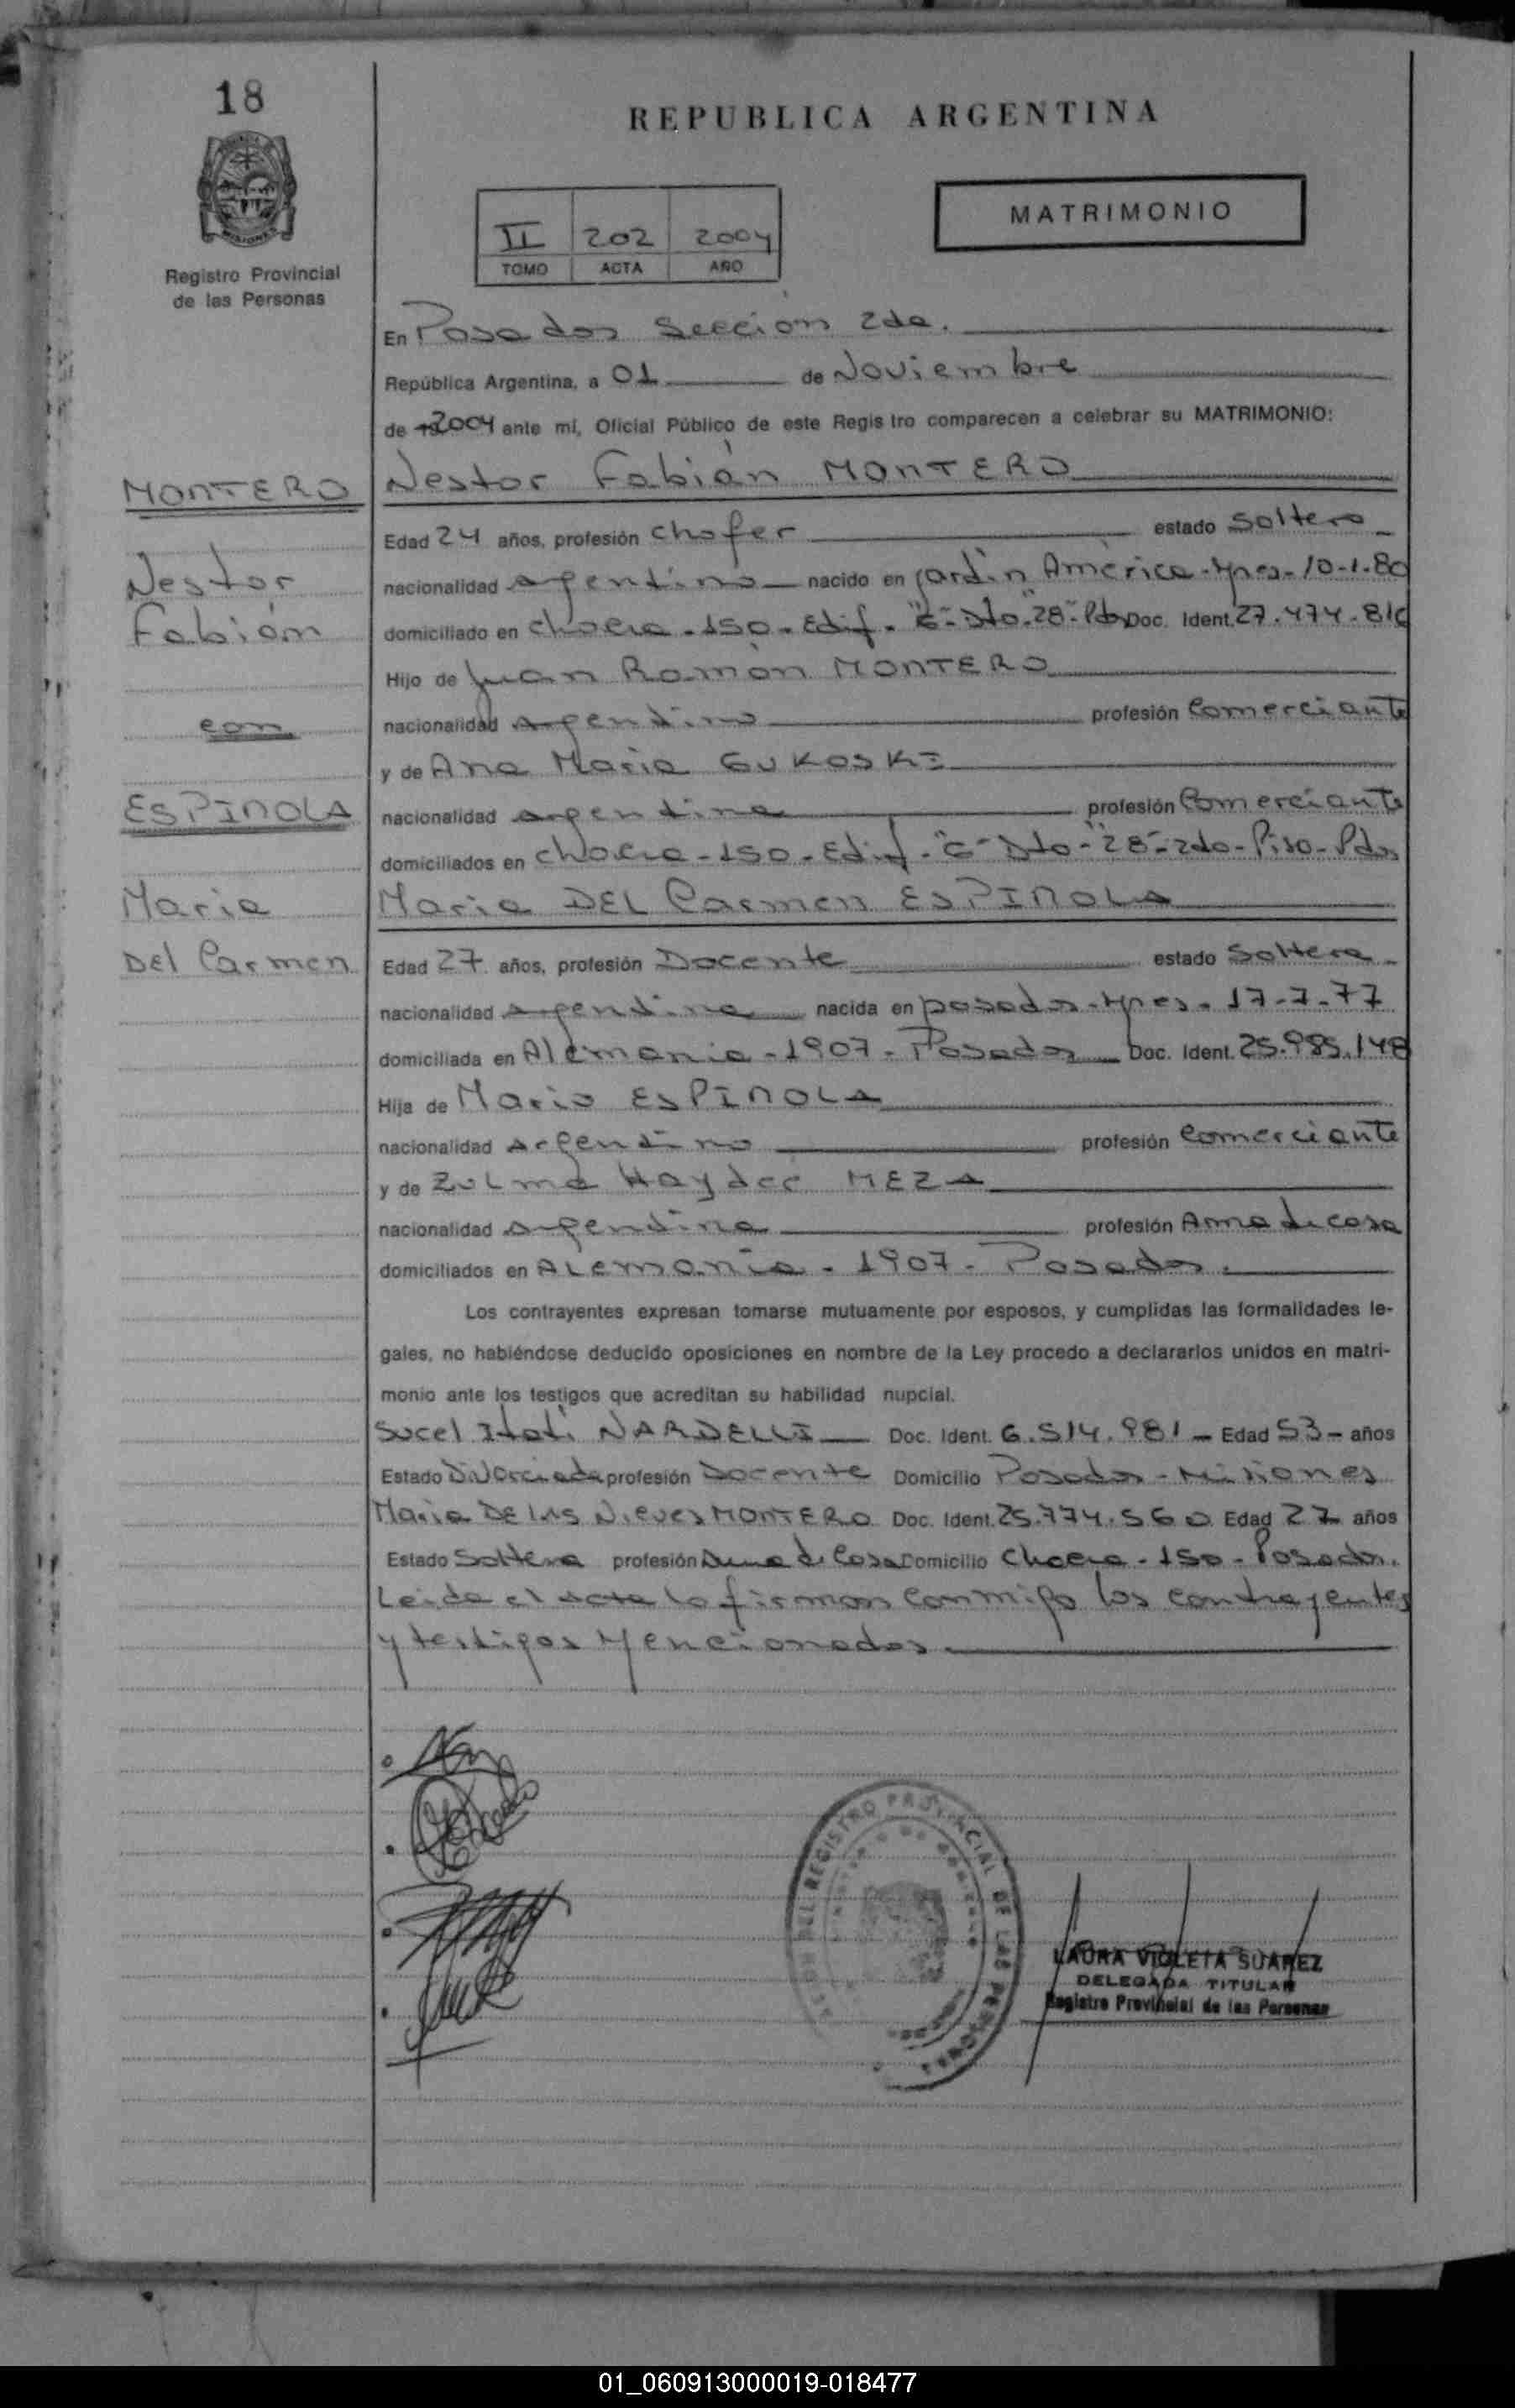 18
REPUBLICA ARGENTINA
MATRIMONIO
II 202 2004
TOMO ACTA AÑO
Registro Provincial
de las Personas
En Posadas Sección 2da.
República Argentina, a 01 de Noviembre
de 2004 ante mí, Oficial Público de este Registro comparecen a celebrar su MATRIMONIO:
MONTERO
Nestor Fabián MONTERO
Edad 24 años, profesión Chofer estado Soltero
Nestor
nacionalidad argentino nacido en Jardín América - Mnes - 10-1-80
Fabián
domiciliado en Chacra - 150 - Edif - "C" - Dto - "28" - Pdas Doc. Ident. 27.474.816
Hijo de Juan Ramón MONTERO
con
nacionalidad Argentino profesión Comerciante
y de Ana Maria GUKOSKI
ESPINOLA
nacionalidad argentina profesión Comerciante
domiciliados en Chacra - 150 - Edif - "C" Dto - "28" - 2do - Piso - Pdas
Maria
Maria DEL Carmen ESPINOLA
Del Carmen
Edad 27 años, profesión Docente estado Soltera
nacionalidad argentina nacida en posadas - Mnes - 17-7-77
domiciliada en Alemania - 1907 - Posadas Doc. Ident. 25.985.148
Hija de Mario ESPINOLA
nacionalidad argentino profesión Comerciante
y de Zulma Haydeé MEZA
nacionalidad argentina profesión Ama de casa
domiciliados en Alemania - 1907 - Posadas.
Los contrayentes expresan tomarse mutuamente por esposos, y cumplidas las formalidades le-
gales, no habiéndose deducido oposiciones en nombre de la Ley procedo a declararlos unidos en matri-
monio ante los testigos que acreditan su habilidad nupcial.
Sucel Itatí NARDELLI Doc. Ident. 6.514.981 - Edad 53 - años
Estado Divorciada profesión Docente Domicilio Posadas - Misiones
Maria DE LAS Nieves MONTERO Doc. Ident. 25.774.560 Edad 27 años
Estado Soltera profesión Ama de Casa Domicilio Chacra - 150 - Posadas.
Leida el acta la firman conmigo los contrayentes
y testigos Mencionados.
DEL REGISTRO PROVINCIAL DE LAS PERSONAS
LAURA VIOLETA SUAREZ
DELEGADA TITULAR
Registro Provincial de las Personas
01_060913000019-018477